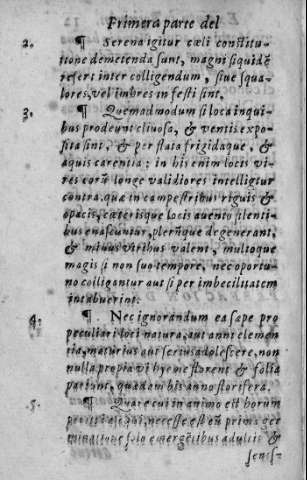 Primera parte del
2. ¶ Serena igitur cæli constitu-
tione demetenda sunt, magni siquidẽ
refert inter colligendum, siue squa-
lores, vel imbres infestisint.
3. ¶ Quemadmodum si loca in quibus
prodeunt cliuosa, & ventis expo-
sita sint, & perflata frigidaque, &
aquis carentia: in his enim locis vi-
res eorũ longe validiores intelligtur
contra. quæ in campestribus riguis &
opacis, cæterisque locis a vento silenti-
bus enascuntur, plerũque degenerant,
& minus viribus valent, multoque
magis si non suo tempore, nec oportu-
no colligantur aut si per imbecilitatem
intabuerint.
4. ¶. Nec ignorandum ea sape pro
peculiari loci natura, aut anni clemen
tia, maturius aut serius adolescere, non
nulla propia vi hyeme florent & folia
pariunt, quædem bis anno florifera.
5. ¶ Quare cui in animo est horum
necesse est eũ prima ger
solo emergẽtibus adultis &
senis-